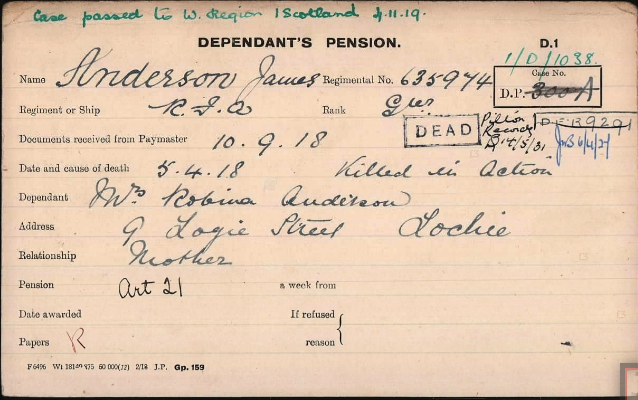 Case passed to W. Region Scotland 4.11.19.
DEPENDANT'S PENSION. D.1
1/D/1038.
Name Anderson James Regimental No. 635974
Case No.
D.P. 300 A
Regiment or Ship R.F.A Rank Gnr
DEAD
Records
14/5/31
DER 9291
6/4/21
Documents received from Paymaster 10.9.18
Date and cause of death 5.4.18 Killed in Action
Dependant Mrs Robina Anderson
Address 9 Logie Street Lochee
Relationship Mother
Pension Art 21 a week from
Date awarded If refused
Papers R reason
F6496 Wt 60 000(12) 2/18 J.P. Gp. 159